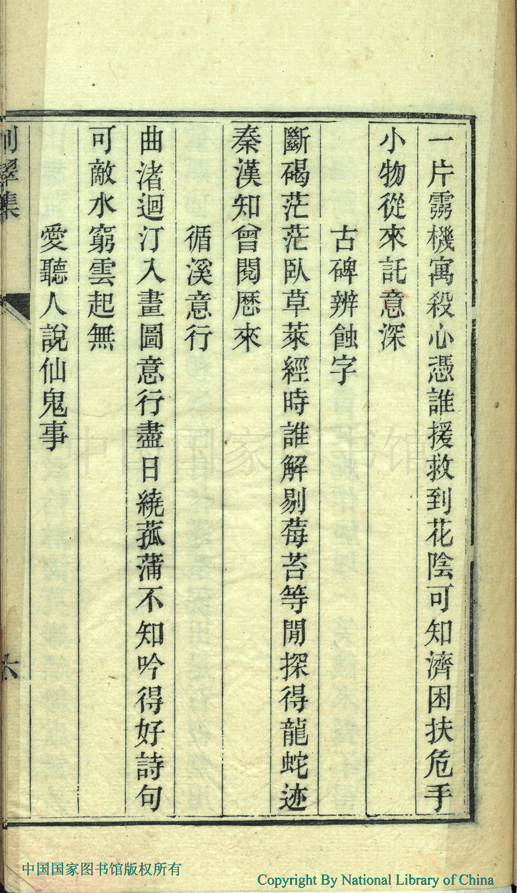 一片霧機寓殺心憑誰援救到花陰可知濟困扶危手
小物從來託意深
古碑辨蝕字
斷碣茫茫臥草萊經時誰解剔莓苔等閒探得龍蛇迹
秦漢知曾閱歷來
循溪意行
曲渚迴汀入畫圖意行盡日繞菰蒲不知吟得好詩句
可敵水窮雲起無
愛聽人說仙鬼事
集
六
中国国家图书馆版权所有
Copyright By National Library of China